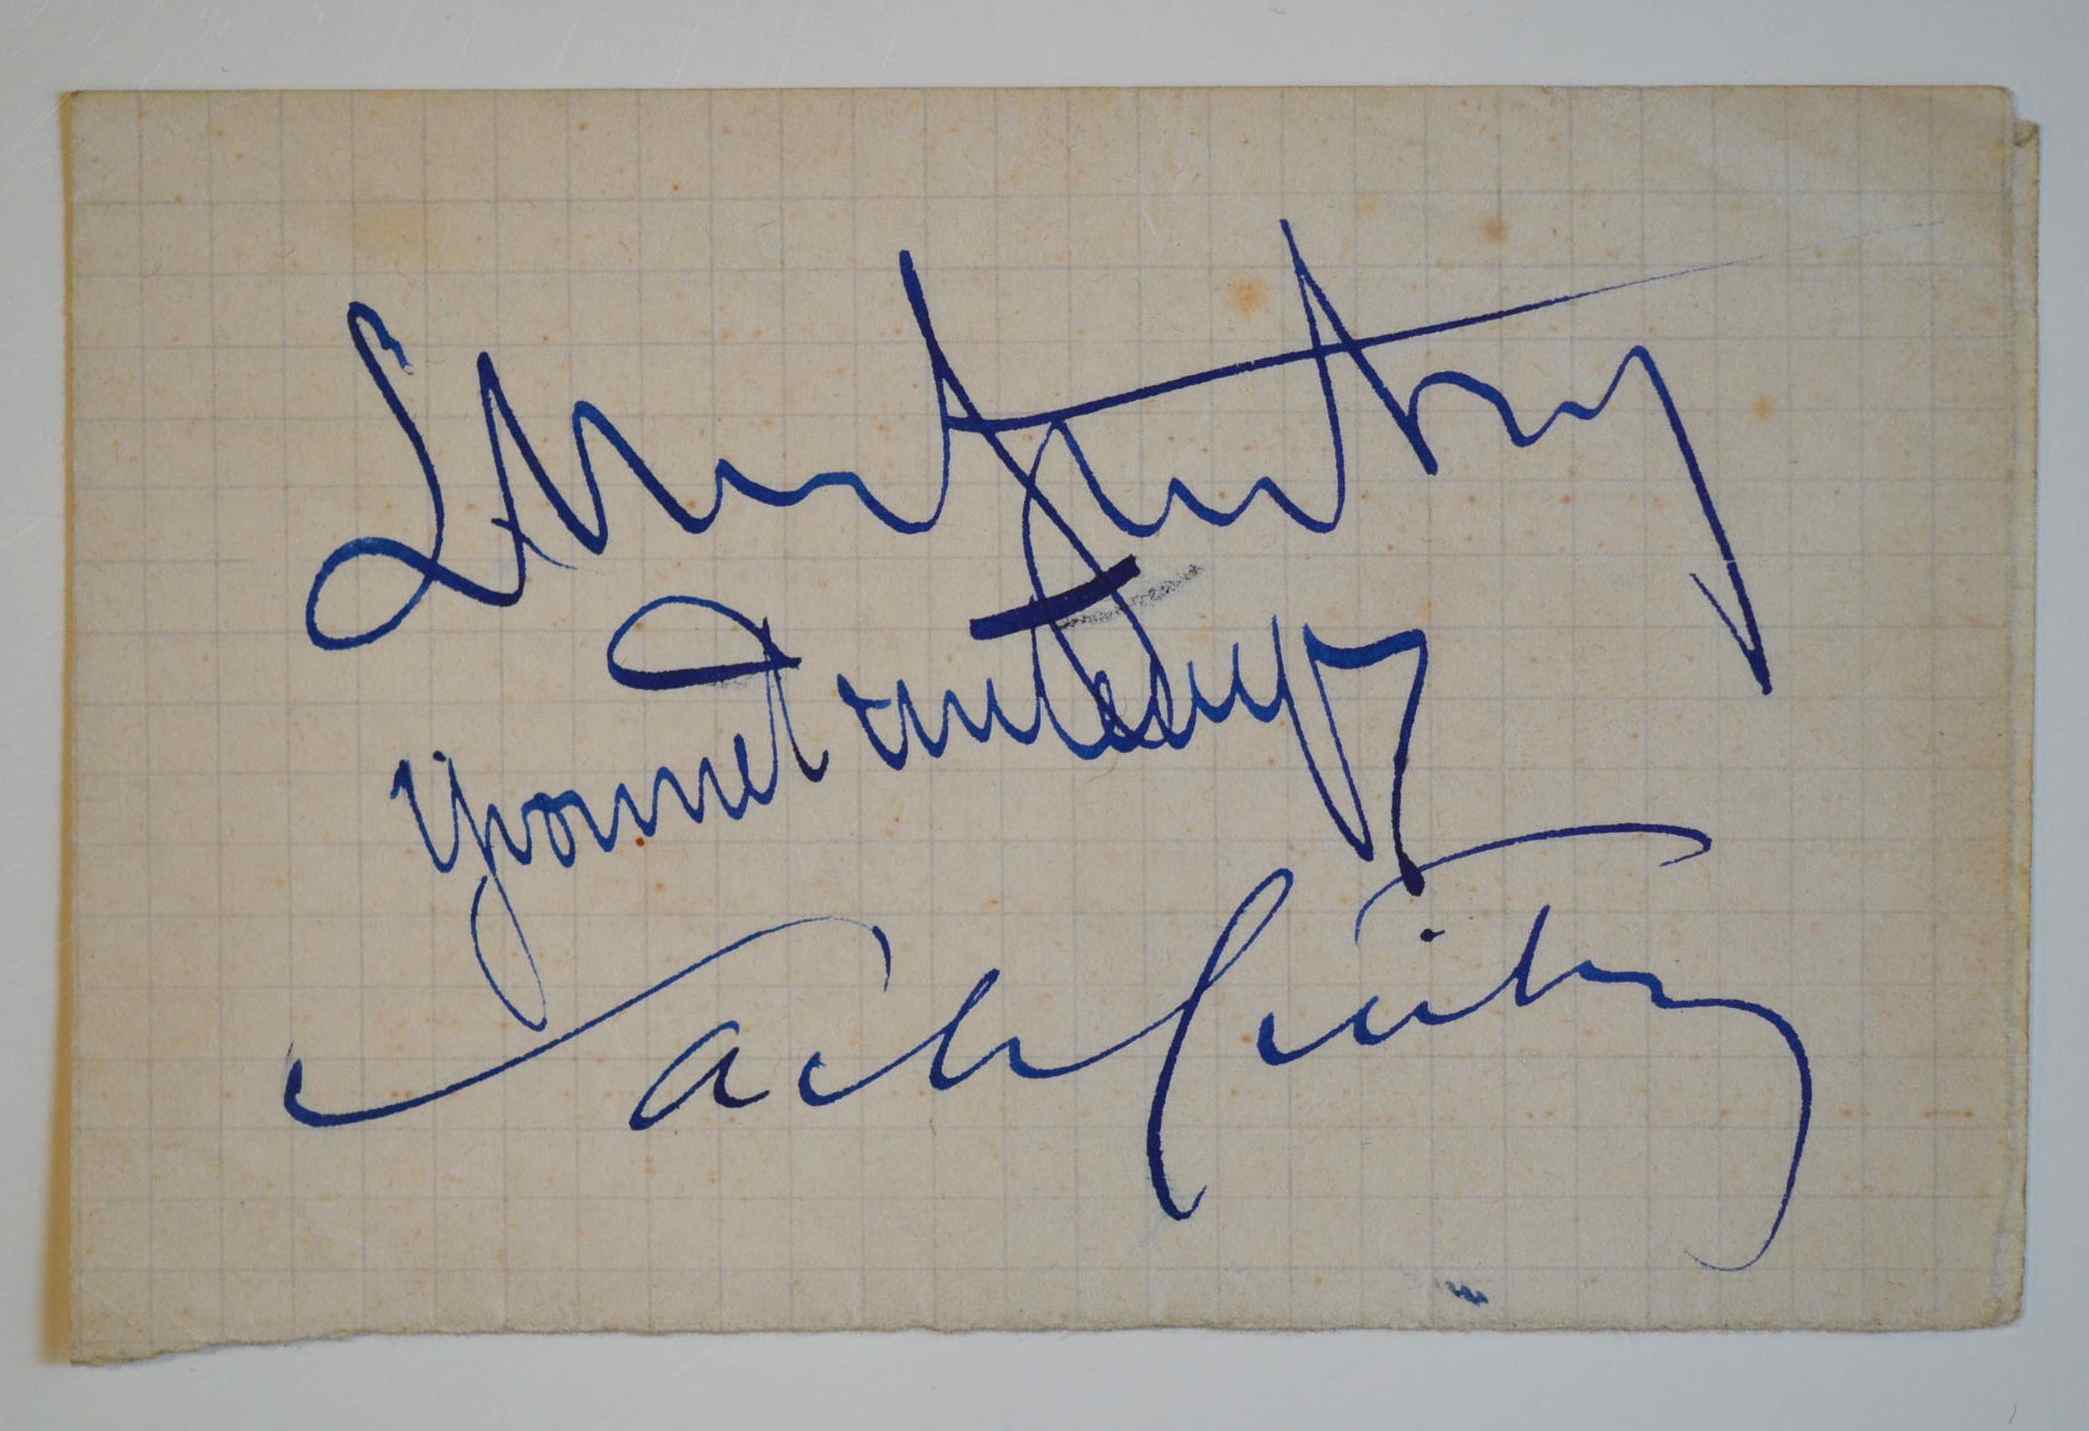 Lucien Guitry
Yvonne Printemps
Sacha Guitry